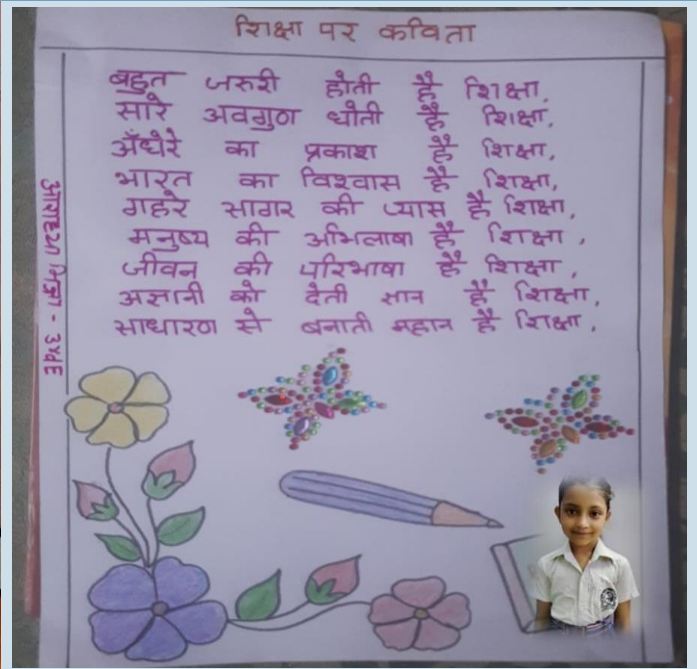 शिक्षा पर कविता
बहुत जरुरी होती है शिक्षा,
सारे अवगुण धोती है शिक्षा,
अँधेरे का प्रकाश है शिक्षा,
भारत का विश्वास है शिक्षा,
गहरे सागर की प्यास है शिक्षा,
मनुष्य की अभिलाषा है शिक्षा,
जीवन की परिभाषा है शिक्षा,
अज्ञानी को देती ज्ञान है शिक्षा,
साधारण से बनाती महान है शिक्षा,